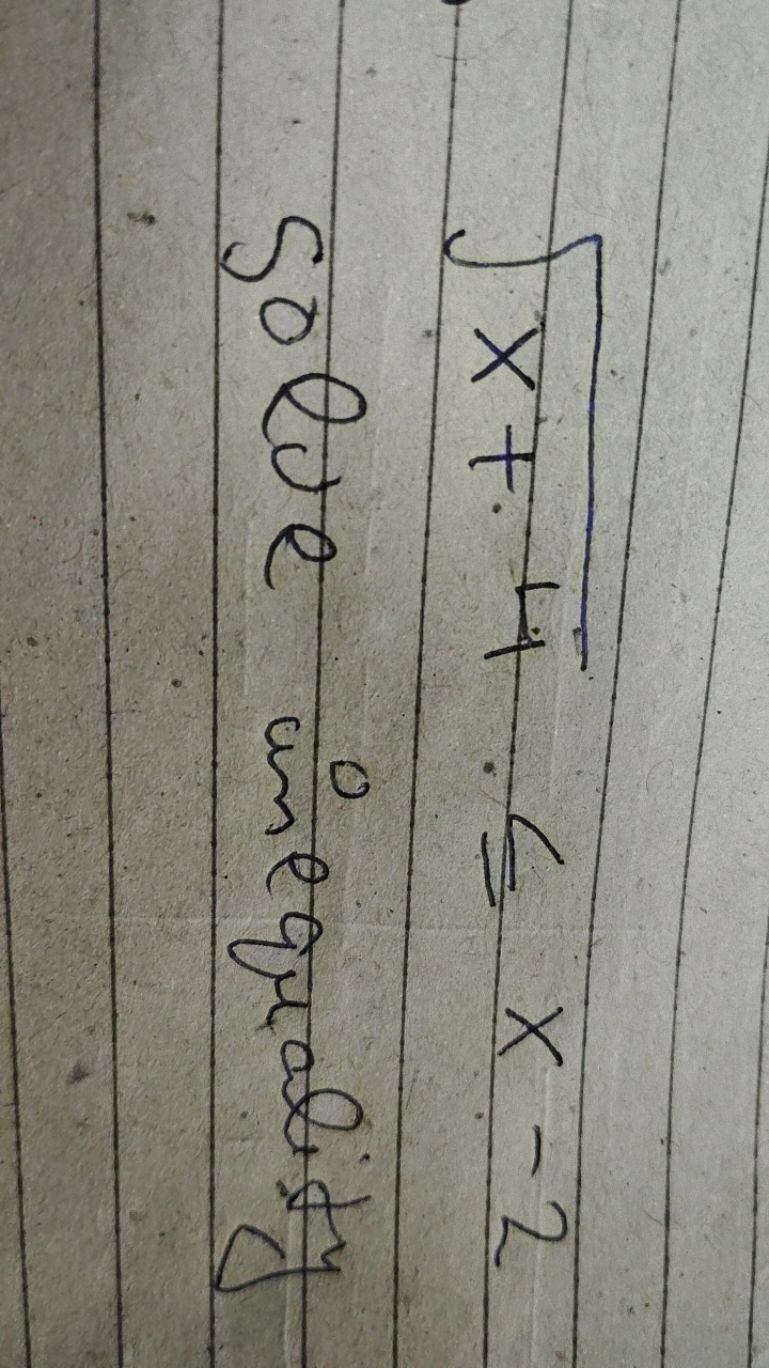 √x + 4 ≤ x - 2
Solve inequality